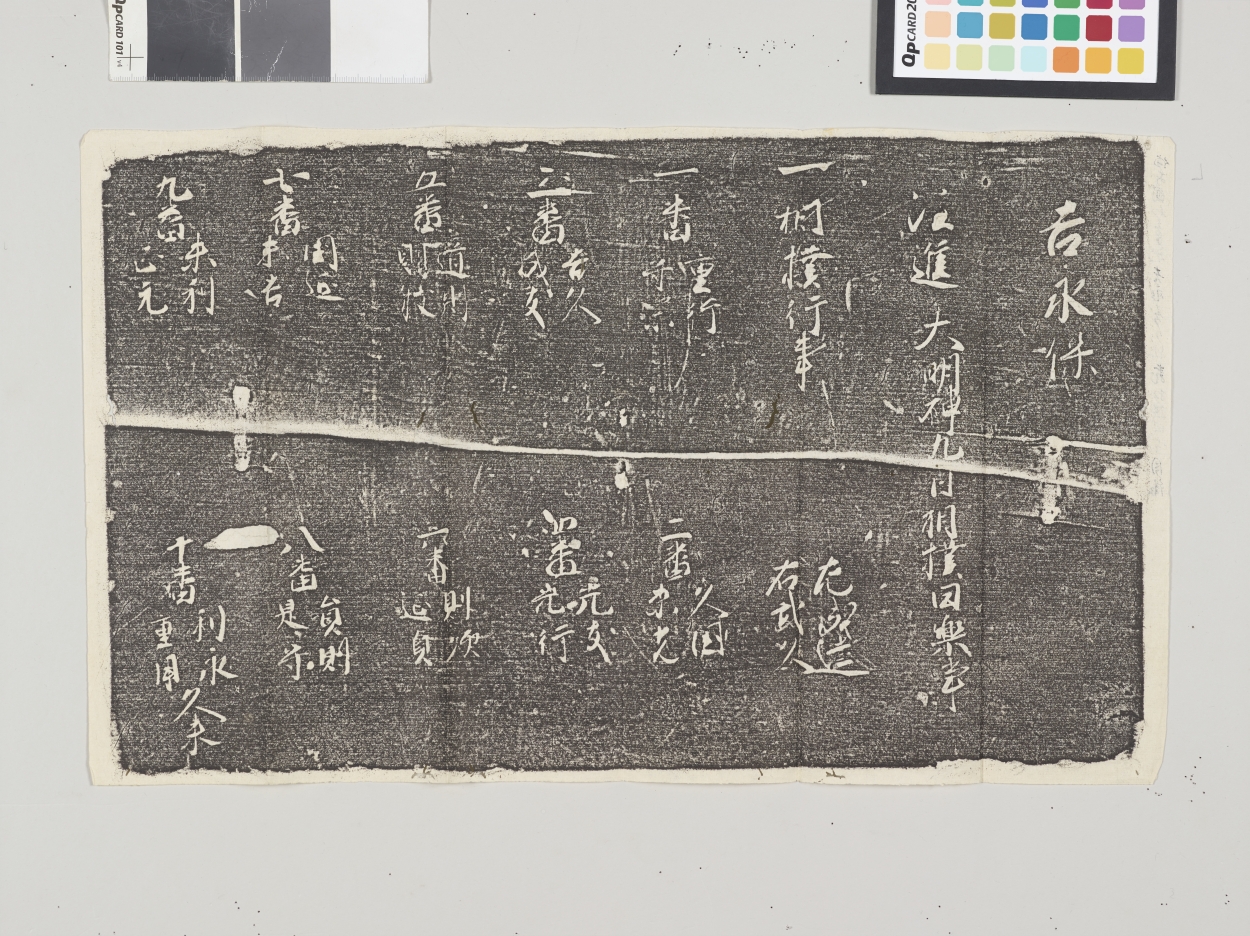 吉永
注進 大明神九月相撲田楽
一相撲行事
右武次
一番
重行
守
二番
久国
末光
三番
吉久
成友
四番
元友
元行
五番
道門
則枝
六番
則次
延貞
七番
国延
末吉
八番
貞則
是宗
九番
末利
正元
十番
利永
重用
久末
QPCARD 101 v4
QPCARD 20